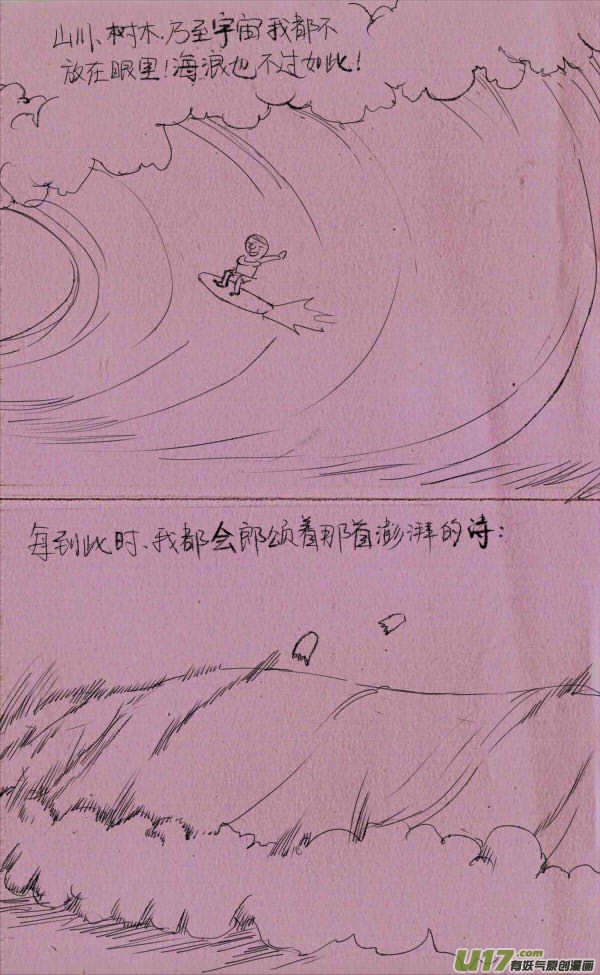 山川、树木、乃至宇宙我都不
放在眼里！海浪也不过如此！
每到此时、我都会郎颂着那首澎湃的诗：
U17.com
有妖气原创漫画